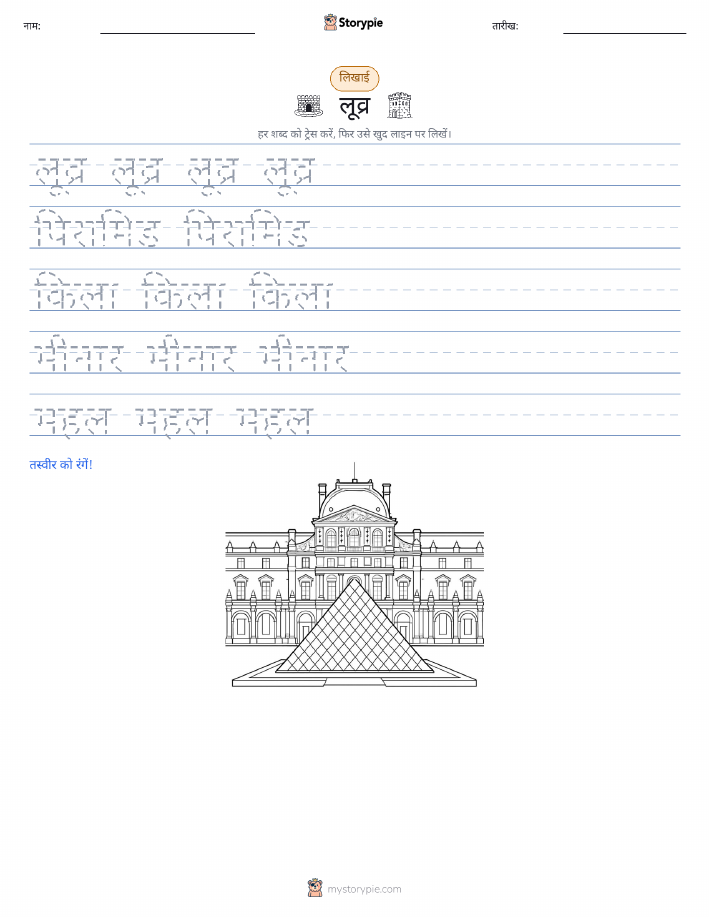 नाम:
Storypie
तारीख:
लिखाई
लूव्र
हर शब्द को ट्रेस करें, फिर उसे खुद लाइन पर लिखें।
लूव्र लूव्र लूव्र लूव्र
पिरामिड पिरामिड
किला किला किला
मीनार मीनार मीनार
महल महल महल
तस्वीर को रंगें!
mystorypie.com